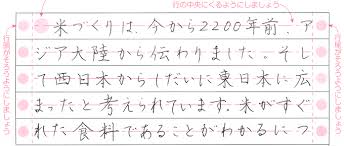 行の中央にくるようにしましょう
行頭がそろうようにしましょう
米づくりは、今から2200年前、ア
ジア大陸から伝わりました。そし
て西日本からしだいに東日本に広
まったと考えられています。米がすぐ
れた食料であることがわかるにつ
行尾がそろうようにしましょう